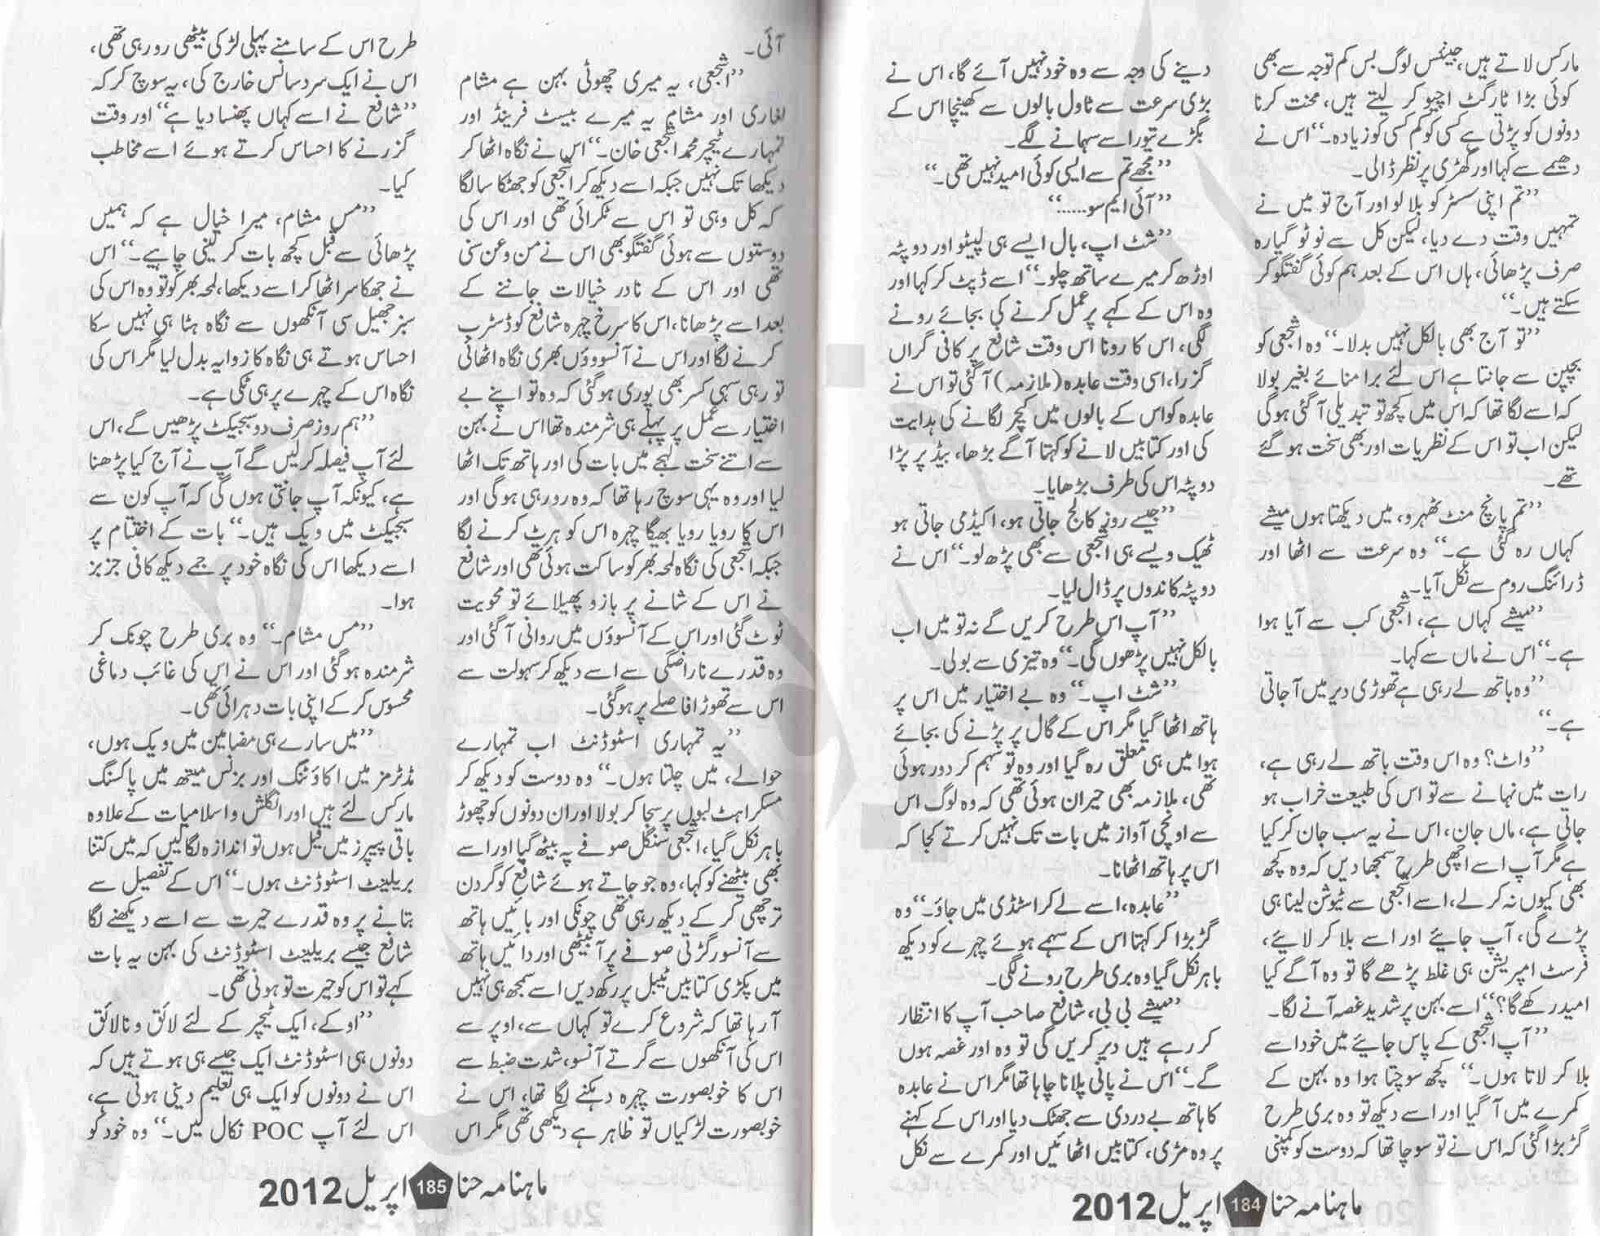 مارکس لاتے ہیں، جینئس لوگ بس کم توجہ سے بھی
کوئی بڑا ٹارگٹ اچیو کر لیتے ہیں، محنت کرنا
دونوں کو پڑتی ہے کسی کو کم کسی کو زیادہ۔“ اس نے
دھیمے سے کہا اور گھڑی پر نظر ڈالی۔
”تم اپنی سسٹر کو بلا لو اور آج تو میں نے
تمہیں وقت دے دیا، لیکن کل سے نو ٹو گیارہ
صرف پڑھائی، ہاں اس کے بعد ہم کوئی گفتگو کر
سکتے ہیں۔“
”تو آج بھی بالکل نہیں بدلا۔“ وہ اشجعی کو
بچپن سے جانتا ہے اس لئے برا منائے بغیر بولا
کہ اسے لگا تھا کہ اس میں کچھ تو تبدیلی آ گئی ہوگی
لیکن اب تو اس کے نظریات اور بھی سخت ہو گئے
تھے۔
”تم پانچ منٹ ٹھہرو، میں دیکھتا ہوں میشے
کہاں رہ گئی ہے۔“ وہ سرعت سے اٹھا اور
ڈرائنگ روم سے نکل آیا۔
”میشے کہاں ہے، اشجعی کب سے آیا ہوا
ہے۔“ اس نے ماں سے کہا۔
”وہ باتھ لے رہی ہے تھوڑی دیر میں آ جاتی
ہے۔“
”واٹ؟ وہ اس وقت باتھ لے رہی ہے،
رات میں نہانے سے تو اس کی طبیعت خراب ہو
جاتی ہے، ماں جان، اس نے یہ سب جان کر کیا
ہے مگر آپ اسے اچھی طرح سمجھا دیں کہ وہ کچھ
بھی کیوں نہ کر لے، اسے اشجعی سے ٹیوشن لینا ہی
پڑے گی، آپ جائیے اور اسے بلا کر لائیے،
فرسٹ امپریشن ہی غلط پڑھے گا تو وہ آگے کیا
امید رکھے گا؟“ اسے بہن پر شدید غصہ آنے لگا۔
”آپ اشجعی کے پاس جائیے میں خود اسے
بلا کر لاتا ہوں۔“ کچھ سوچتا ہوا وہ بہن کے
کمرے میں آ گیا اور اسے دیکھ تو وہ بری طرح
گڑبڑا گئی کہ اس نے تو سوچا تھا کہ دوست کو کمپنی
دینے کی وجہ سے وہ خود نہیں آئے گا، اس نے
بڑی سرعت سے ٹاول بالوں سے کھینچا اس کے
بگڑے تیور اسے سہمانے لگے۔
”مجھے تم سے ایسی کوئی امید نہیں تھی۔“
”آئی ایم سو.....“
”شٹ اپ، بال ایسے ہی لپیٹو اور دوپٹہ
اوڑھ کر میرے ساتھ چلو۔“ اسے ڈپٹ کر کہا اور
وہ اس کے کہے پر عمل کرنے کی بجائے رونے
لگی، اس کا رونا اس وقت شافع پر کافی گراں
گزرا، اسی وقت عابدہ (ملازمہ) آ گئی تو اس نے
عابدہ کو اس کے بالوں میں کیچر لگانے کی ہدایت
کی اور کتابیں لانے کو کہتا آگے بڑھا، بیڈ پر پڑا
دوپٹہ اس کی طرف بڑھایا۔
”جیسے روز کالج جاتی ہو، اکیڈمی جاتی ہو
ٹھیک ویسے ہی اشجعی سے بھی پڑھ لو۔“ اس نے
دوپٹہ کاندوں پر ڈال لیا۔
”آپ اس طرح کریں گے نہ تو میں اب
بالکل نہیں پڑھوں گی۔“ وہ تیزی سے بولی۔
”شٹ اپ۔“ وہ بے اختیار میں اس پر
ہاتھ اٹھا گیا مگر اس کے گال پر پڑنے کی بجائے
ہوا میں ہی معلق رہ گیا اور وہ تو سہم کر دور ہوئی
تھی، ملازمہ بھی حیران ہوئی تھی کہ وہ لوگ اس
سے اونچی آواز میں بات تک نہیں کرتے کجا کہ
اس پر ہاتھ اٹھانا۔
”عابدہ، اسے لے کر اسٹڈی میں جاؤ۔“ وہ
گڑبڑا کر کہتا اس کے سہمے ہوئے چہرے کو دیکھ
باہر نکل گیا وہ بری طرح رونے لگی۔
”میشے بی بی، شافع صاحب آپ کا انتظار
کر رہے ہیں دیر کریں گی تو وہ اور غصہ ہوں
گے۔“ اس نے پانی پلانا چاہا تھا مگر اس نے عابدہ
کا ہاتھ بے دردی سے جھٹک دیا اور اس کے کہنے
پر وہ مڑی، کتابیں اٹھائیں اور کمرے سے نکل
ماہنامہ حنا 184 اپریل 2012
آئی۔
”اشجعی، یہ میری چھوٹی بہن ہے مشام
لغاری اور مشام یہ میرے بیسٹ فرینڈ اور
تمہارے ٹیچر محمد اشجعی خان۔“ اس نے نگاہ اٹھا کر
دیکھا تک نہیں جبکہ اسے دیکھ کر اشجعی کو جھٹکا سا لگا
کہ کل وہی تو اس سے ٹکرائی تھی اور اس کی
دوستوں سے ہوئی گفتگو بھی اس نے من و عن سنی
تھی اور اس کے نادر خیالات جاننے کے
بعد اسے پڑھانا، اس کا سرخ چہرہ شافع کو ڈسٹرب
کرنے لگا اور اس نے آنسوؤں بھری نگاہ اٹھائی
تو رہی سہی کسر بھی پوری ہو گئی کہ وہ تو اپنے بے
اختیار سے عمل پر پہلے ہی شرمندہ تھا اس نے بہن
سے اتنے سخت لہجے میں بات کی اور ہاتھ تک اٹھا
لیا اور وہ یہی سوچ رہا تھا کہ وہ رو رہی ہوگی اور
اس کا رویا رویا بھیگا چہرہ اس کو ہرٹ کرنے لگا
جبکہ اشجعی کی نگاہ لمحہ بھر کو ساکت ہوئی تھی اور شافع
نے اس کے شانے پر بازو پھیلائے تو محویت
ٹوٹ گئی اور اس کے آنسوؤں میں روانی آ گئی اور
وہ قدرے ناراضگی سے اسے دیکھ کر سہولت سے
اس سے تھوڑا فاصلے پر ہو گئی۔
”یہ تمہاری اسٹوڈنٹ اب تمہارے
حوالے، میں چلتا ہوں۔“ وہ دوست کو دیکھ کر
مسکراہٹ لبوں پر سجا کر بولا اور ان دونوں کو چھوڑ
باہر نکل گیا، اشجعی سنگل صوفے پہ بیٹھ گیا اور اسے
بھی بیٹھنے کو کہا، وہ جو جاتے ہوئے شافع کو گردن
ترچھی کر کے دیکھ رہی تھی چونکی اور بائیں ہاتھ
سے آنسو رگڑتی صوفے پر آ بیٹھی اور دائیں ہاتھ
میں پکڑی کتابیں ٹیبل پر رکھ دیں اسے سمجھ ہی نہیں
آ رہا تھا کہ شروع کرے تو کہاں سے، اوپر سے
اس کی آنکھوں سے گرتے آنسو، شدت ضبط سے
اس کا خوبصورت چہرہ دہکنے لگا تھا، اس نے
خوبصورت لڑکیاں تو ظاہر ہے دیکھی تھی مگر اس
طرح اس کے سامنے پہلی لڑکی بیٹھی رو رہی تھی،
اس نے ایک سرد سانس خارج کی، یہ سوچ کر کہ
”شافع نے اسے کہاں پھنسا دیا ہے“ اور وقت
گزرنے کا احساس کرتے ہوئے اسے مخاطب
کیا۔
”مس مشام، میرا خیال ہے کہ ہمیں
پڑھائی سے قبل کچھ بات کر لینی چاہیے۔“ اس
نے جھکا سر اٹھا کر اسے دیکھا، لمحہ بھر کو تو وہ اس کی
سبز جھیل سی آنکھوں سے نگاہ ہٹا ہی نہیں سکا
احساس ہوتے ہی نگاہ کا زاویہ بدل لیا مگر اس کی
نگاہ اس کے چہرے پر ہی ٹکی ہے۔
”ہم روز صرف دو سبجیکٹ پڑھیں گے، اس
لئے آپ فیصلہ کر لیں گے آپ نے آج کیا پڑھنا
ہے، کیونکہ آپ جانتی ہوں گی کہ آپ کون سے
سبجیکٹ میں ویک ہیں۔“ بات کے اختتام پر
اسے دیکھا اس کی نگاہ خود پر جمے دیکھ کافی جزبز
ہوا۔
”مس مشام۔“ وہ بری طرح چونک کر
شرمندہ ہو گئی اور اس نے اس کی غائب دماغی
محسوس کر کے اپنی بات دہرائی تھی۔
”میں سارے ہی مضامین میں ویک ہوں،
مڈٹرمز میں اکاؤنٹنگ اور بزنس میتھ میں پاسنگ
مارکس لئے ہیں اور انگلش و اسلامیات کے علاوہ
باقی پیپرز میں فیل ہوں تو اندازہ لگا لیں کہ میں کتنا
بریلینٹ اسٹوڈنٹ ہوں۔“ اس کے تفصیل سے
بتانے پر وہ قدرے حیرت سے اسے دیکھنے لگا
شافع جیسے بریلینٹ اسٹوڈنٹ کی بہن یہ بات
کہے تو اس کو حیرت تو ہونی تھی۔
”اوکے، ایک ٹیچر کے لئے لائق و نالائق
دونوں ہی اسٹوڈنٹ ایک جیسے ہی ہوتے ہیں کہ
اس نے دونوں کو ایک ہی تعلیم دینی ہوتی ہے،
اس لئے آپ POC نکال لیں۔“ وہ خود کو
ماہنامہ حنا 185 اپریل 2012